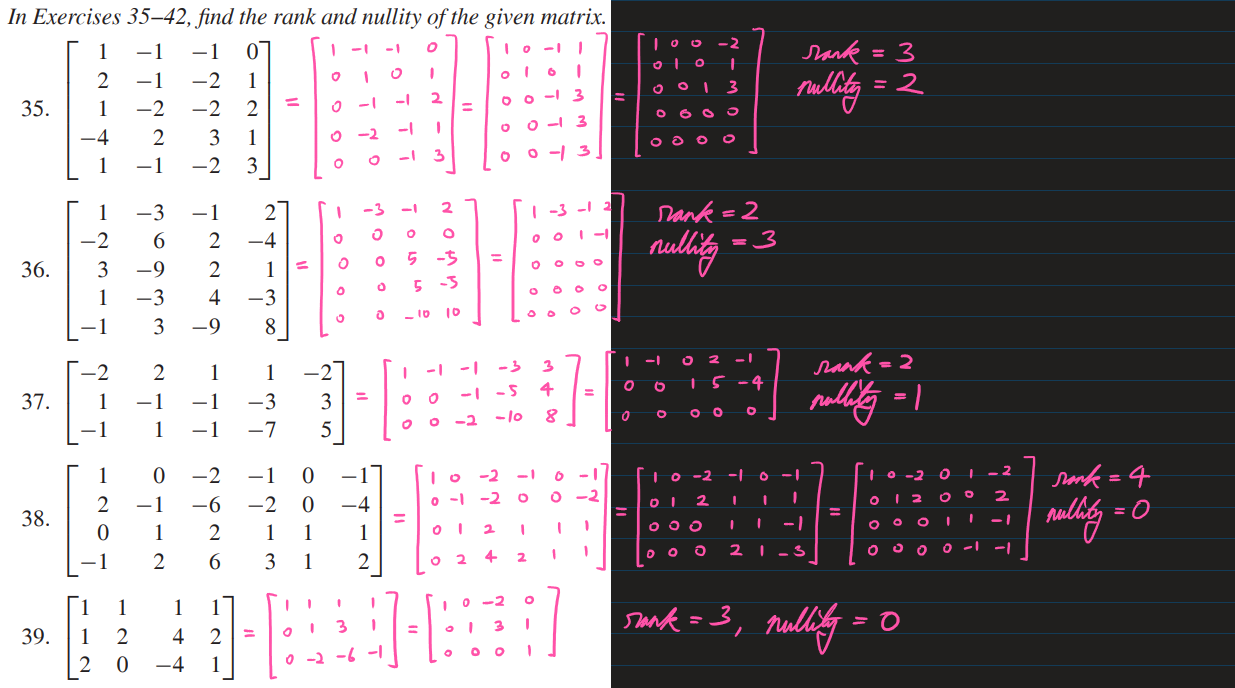 In Exercises 35–42, find the rank and nullity of the given matrix.
35. [1 −1 −1 0; 2 −1 −2 1; 1 −2 −2 2; −4 2 3 1; 1 −1 −2 3] = [1 -1 -1 0; 0 1 0 1; 0 -1 -1 2; 0 -2 -1 1; 0 0 -1 3] = [1 0 -1 1; 0 1 0 1; 0 0 -1 3; 0 0 -1 3; 0 0 -1 3] = [1 0 0 -2; 0 1 0 1; 0 0 1 3; 0 0 0 0; 0 0 0 0] rank = 3
nullity = 2
36. [1 −3 −1 2; −2 6 2 −4; 3 −9 2 1; 1 −3 4 −3; −1 3 −9 8] = [1 -3 -1 2; 0 0 0 0; 0 0 5 -5; 0 0 5 -5; 0 0 -10 10] = [1 -3 -1 2; 0 0 1 -1; 0 0 0 0; 0 0 0 0; 0 0 0 0] rank = 2
nullity = 3
37. [−2 2 1 1 −2; 1 −1 −1 −3 3; −1 1 −1 −7 5] = [1 -1 -1 -3 3; 0 0 -1 -5 4; 0 0 -2 -10 8] = [1 -1 0 2 -1; 0 0 1 5 -4; 0 0 0 0 0] rank = 2
nullity = 1
38. [1 0 −2 −1 0 −1; 2 −1 −6 −2 0 −4; 0 1 2 1 1 1; −1 2 6 3 1 2] = [1 0 -2 -1 0 -1; 0 -1 -2 0 0 -2; 0 1 2 1 1 1; 0 2 4 2 1 1] = [1 0 -2 -1 0 -1; 0 1 2 1 1 1; 0 0 0 1 1 -1; 0 0 0 2 1 -3] = [1 0 -2 0 1 -2; 0 1 2 0 0 2; 0 0 0 1 1 -1; 0 0 0 0 -1 -1] rank = 4
nullity = 0
39. [1 1 1 1; 1 2 4 2; 2 0 −4 1] = [1 1 1 1; 0 1 3 1; 0 -2 -6 -1] = [1 0 -2 0; 0 1 3 1; 0 0 0 1] rank = 3, nullity = 0